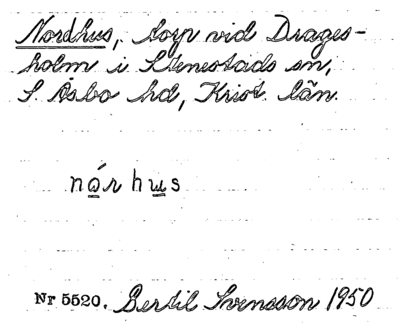 Nordhus, torp vid Drages-
holm i Stenestads sn,
S. Åsbo hd, Krist. län.
nórhus
Nr 5520. Bertil Svensson 1950